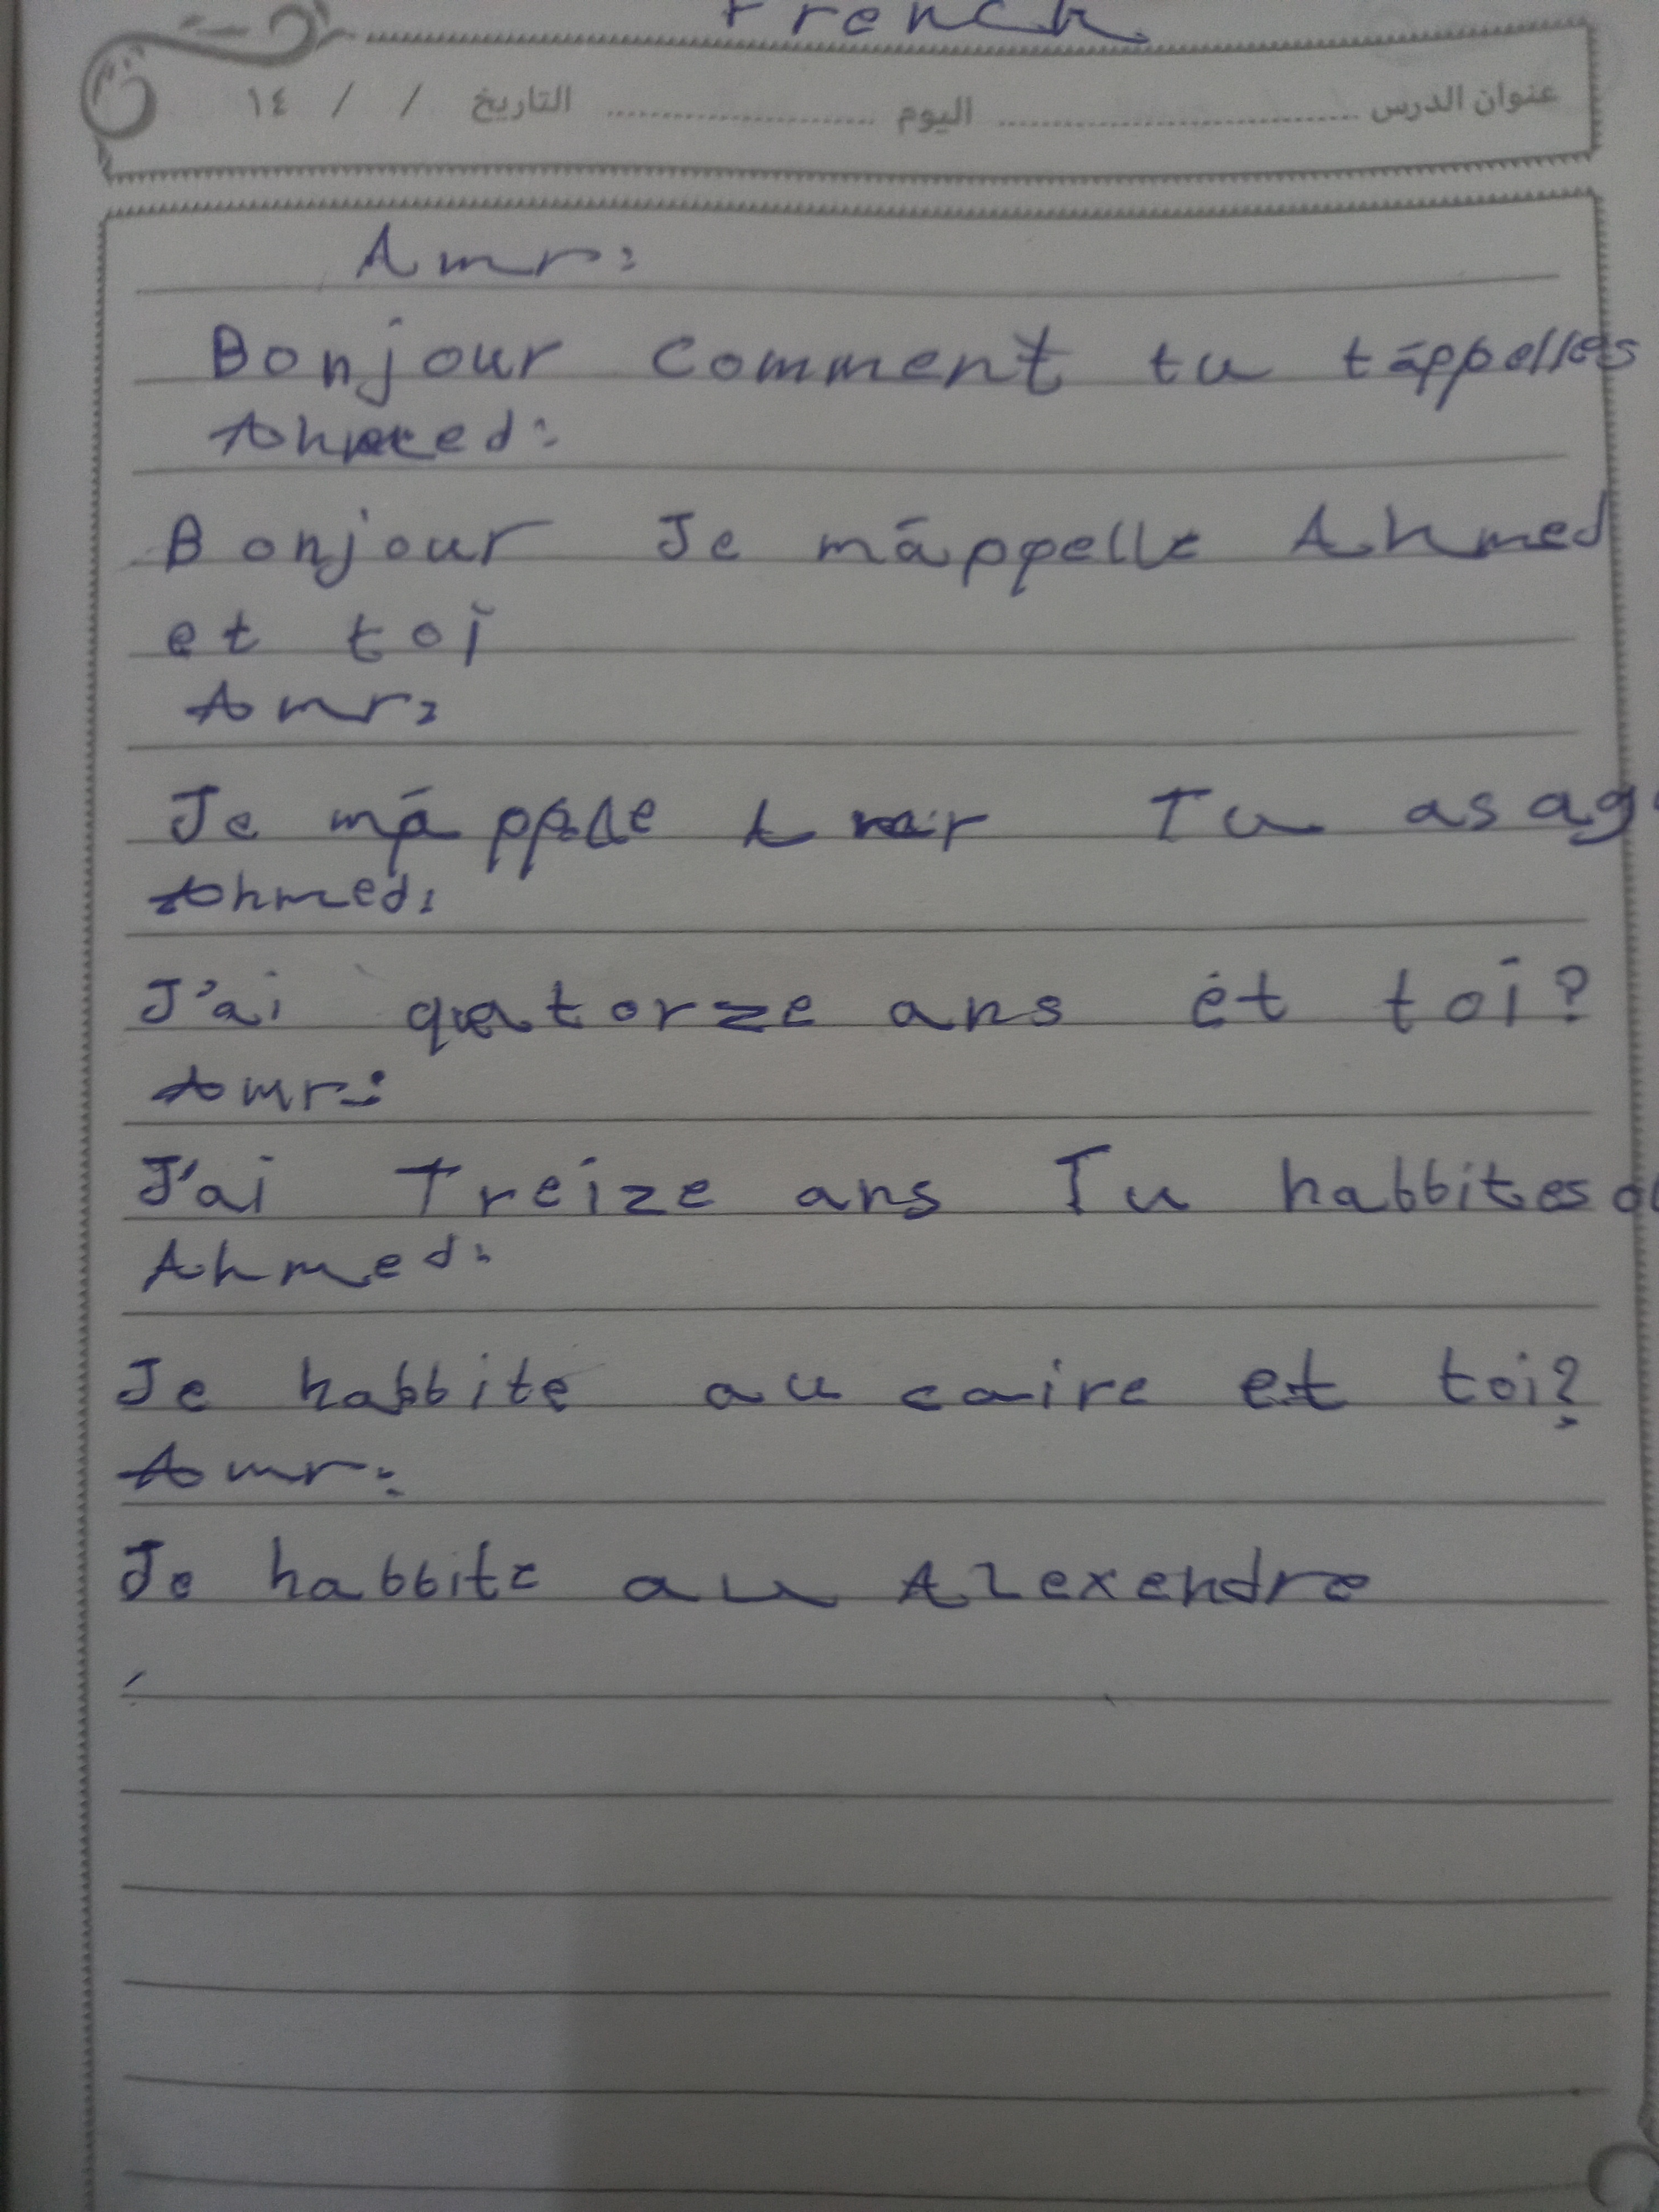 French
عنوان الدرس ........ اليوم ........ التاريخ / / ١٤
Amr:
Bonjour comment tu t'appelles
Ahmed:
Bonjour Je m'appelle Ahmed
et toi
Amr:
Je m'appelle Amr Tu as
Ahmed:
J'ai quatorze ans et toi?
Amr:
J'ai Treize ans Tu habbites
Ahmed:
Je habbite au caire et toi?
Amr:
Je habbite au Alexendre